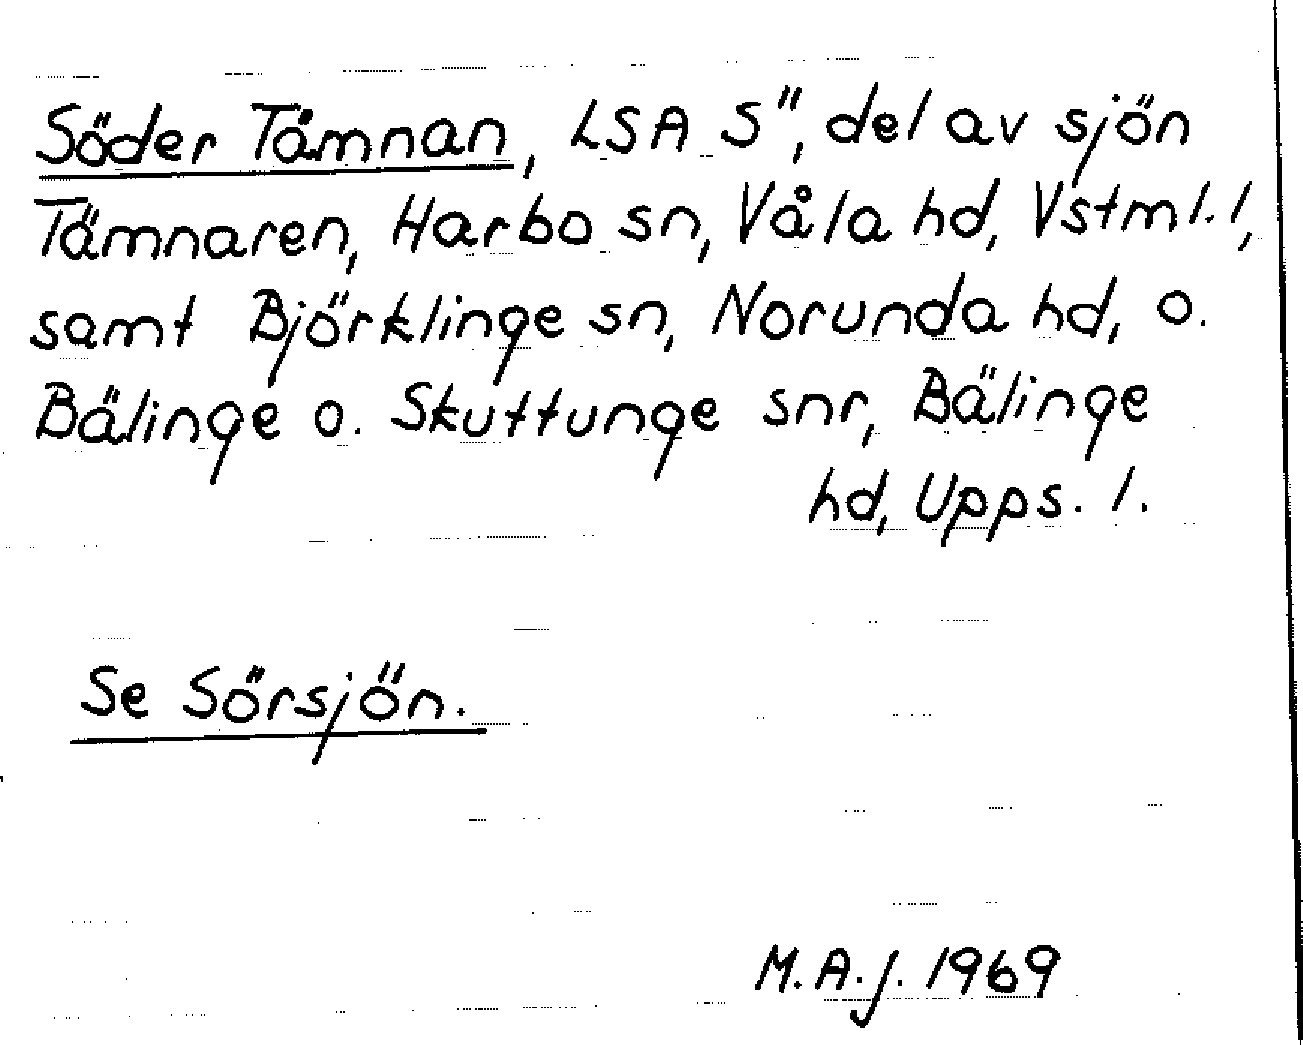 Söder Tåmnan, LSA S", del av sjön
Tämnaren, Harbo sn, Våla hd, Vstml. l,
samt Björklinge sn, Norunda hd, o.
Bälinge o. Skuttunge snr, Bälinge
hd, Upps. l.
Se Sörsjön.
M.A.J. 1969